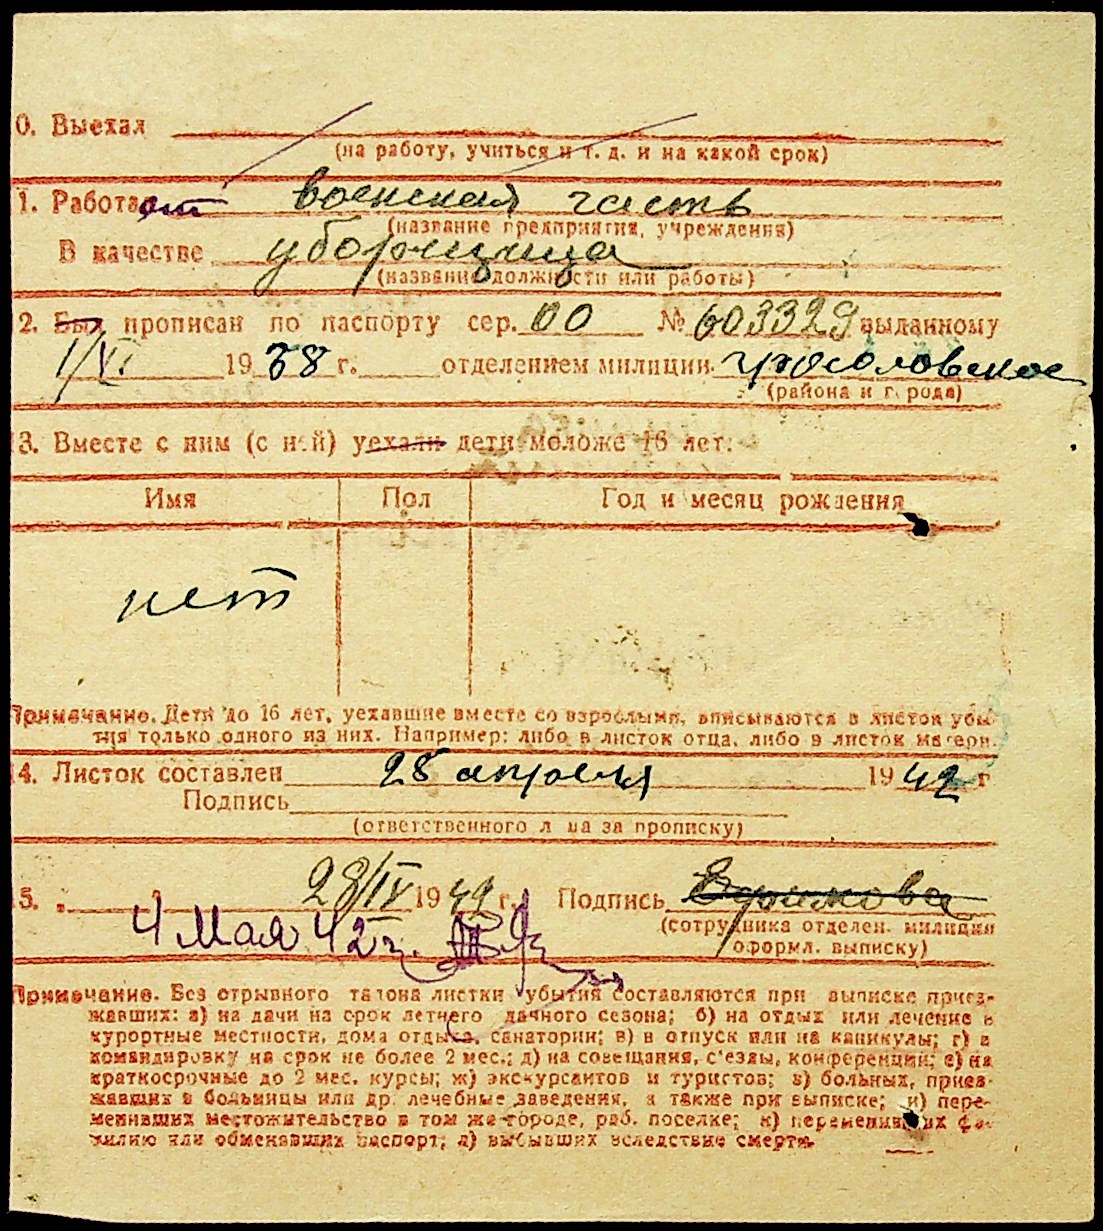 0. Выехал
(на работу, учиться и т. д. и на какой срок)
1. Работает военская часть
(название предприятия, учреждения)
В качестве уборщица
(название должности или работы)
2. Был прописан по паспорту сер. 00 № 603329 выданному
1/VI 1938 г. отделением милиции
(района и города)
3. Вместе с ним (с ней) уехали дети моложе 16 лет:
Имя Пол Год и месяц рождения
нет
Примечание. Дети до 16 лет, уехавшие вместе со взрослыми, вписываются в листок убы-
тия только одного из них. Например: либо в листок отца, либо в листок матери.
4. Листок составлен 28 апреля 1942 г
Подпись
(ответственного лица за прописку)
5. 28/IV 1942 г. Подпись
(сотрудника отделен. милиции
оформл. выписку)
4 Мая 42 г.
Примечание. Без отрывного талона листки убытия составляются при выписке приез-
жавших: а) на дачи на срок летнего дачного сезона; б) на отдых или лечение в
курортные местности, дома отдыха, санатории; в) в отпуск или на каникулы; г) в
командировку на срок не более 2 мес.; д) на совещания, с'езды, конференции; е) на
краткосрочные до 2 мес. курсы; ж) экскурсантов и туристов; з) больных, приез-
жавших в больницы или др. лечебные заведения, а также при выписке; и) пере-
менивших местожительство в том же городе, раб. поселке; к) переменивших фа-
милию или обменявших паспорт; л) выбывших вследствие смерти.